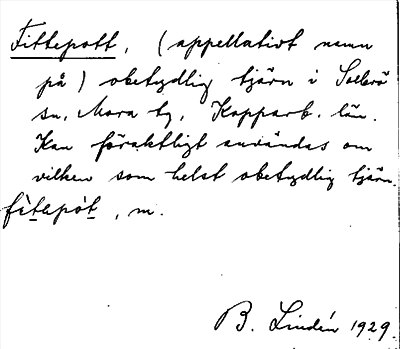 Fittepott, (appellativt namn
på) obetydlig tjärn i Sollerö
sn, Mora tg, Kopparb. län.
Kan föraktligt användas om
vilken som helst obetydlig tjärn.
fitepòt, m.
B. Lindén 1929.